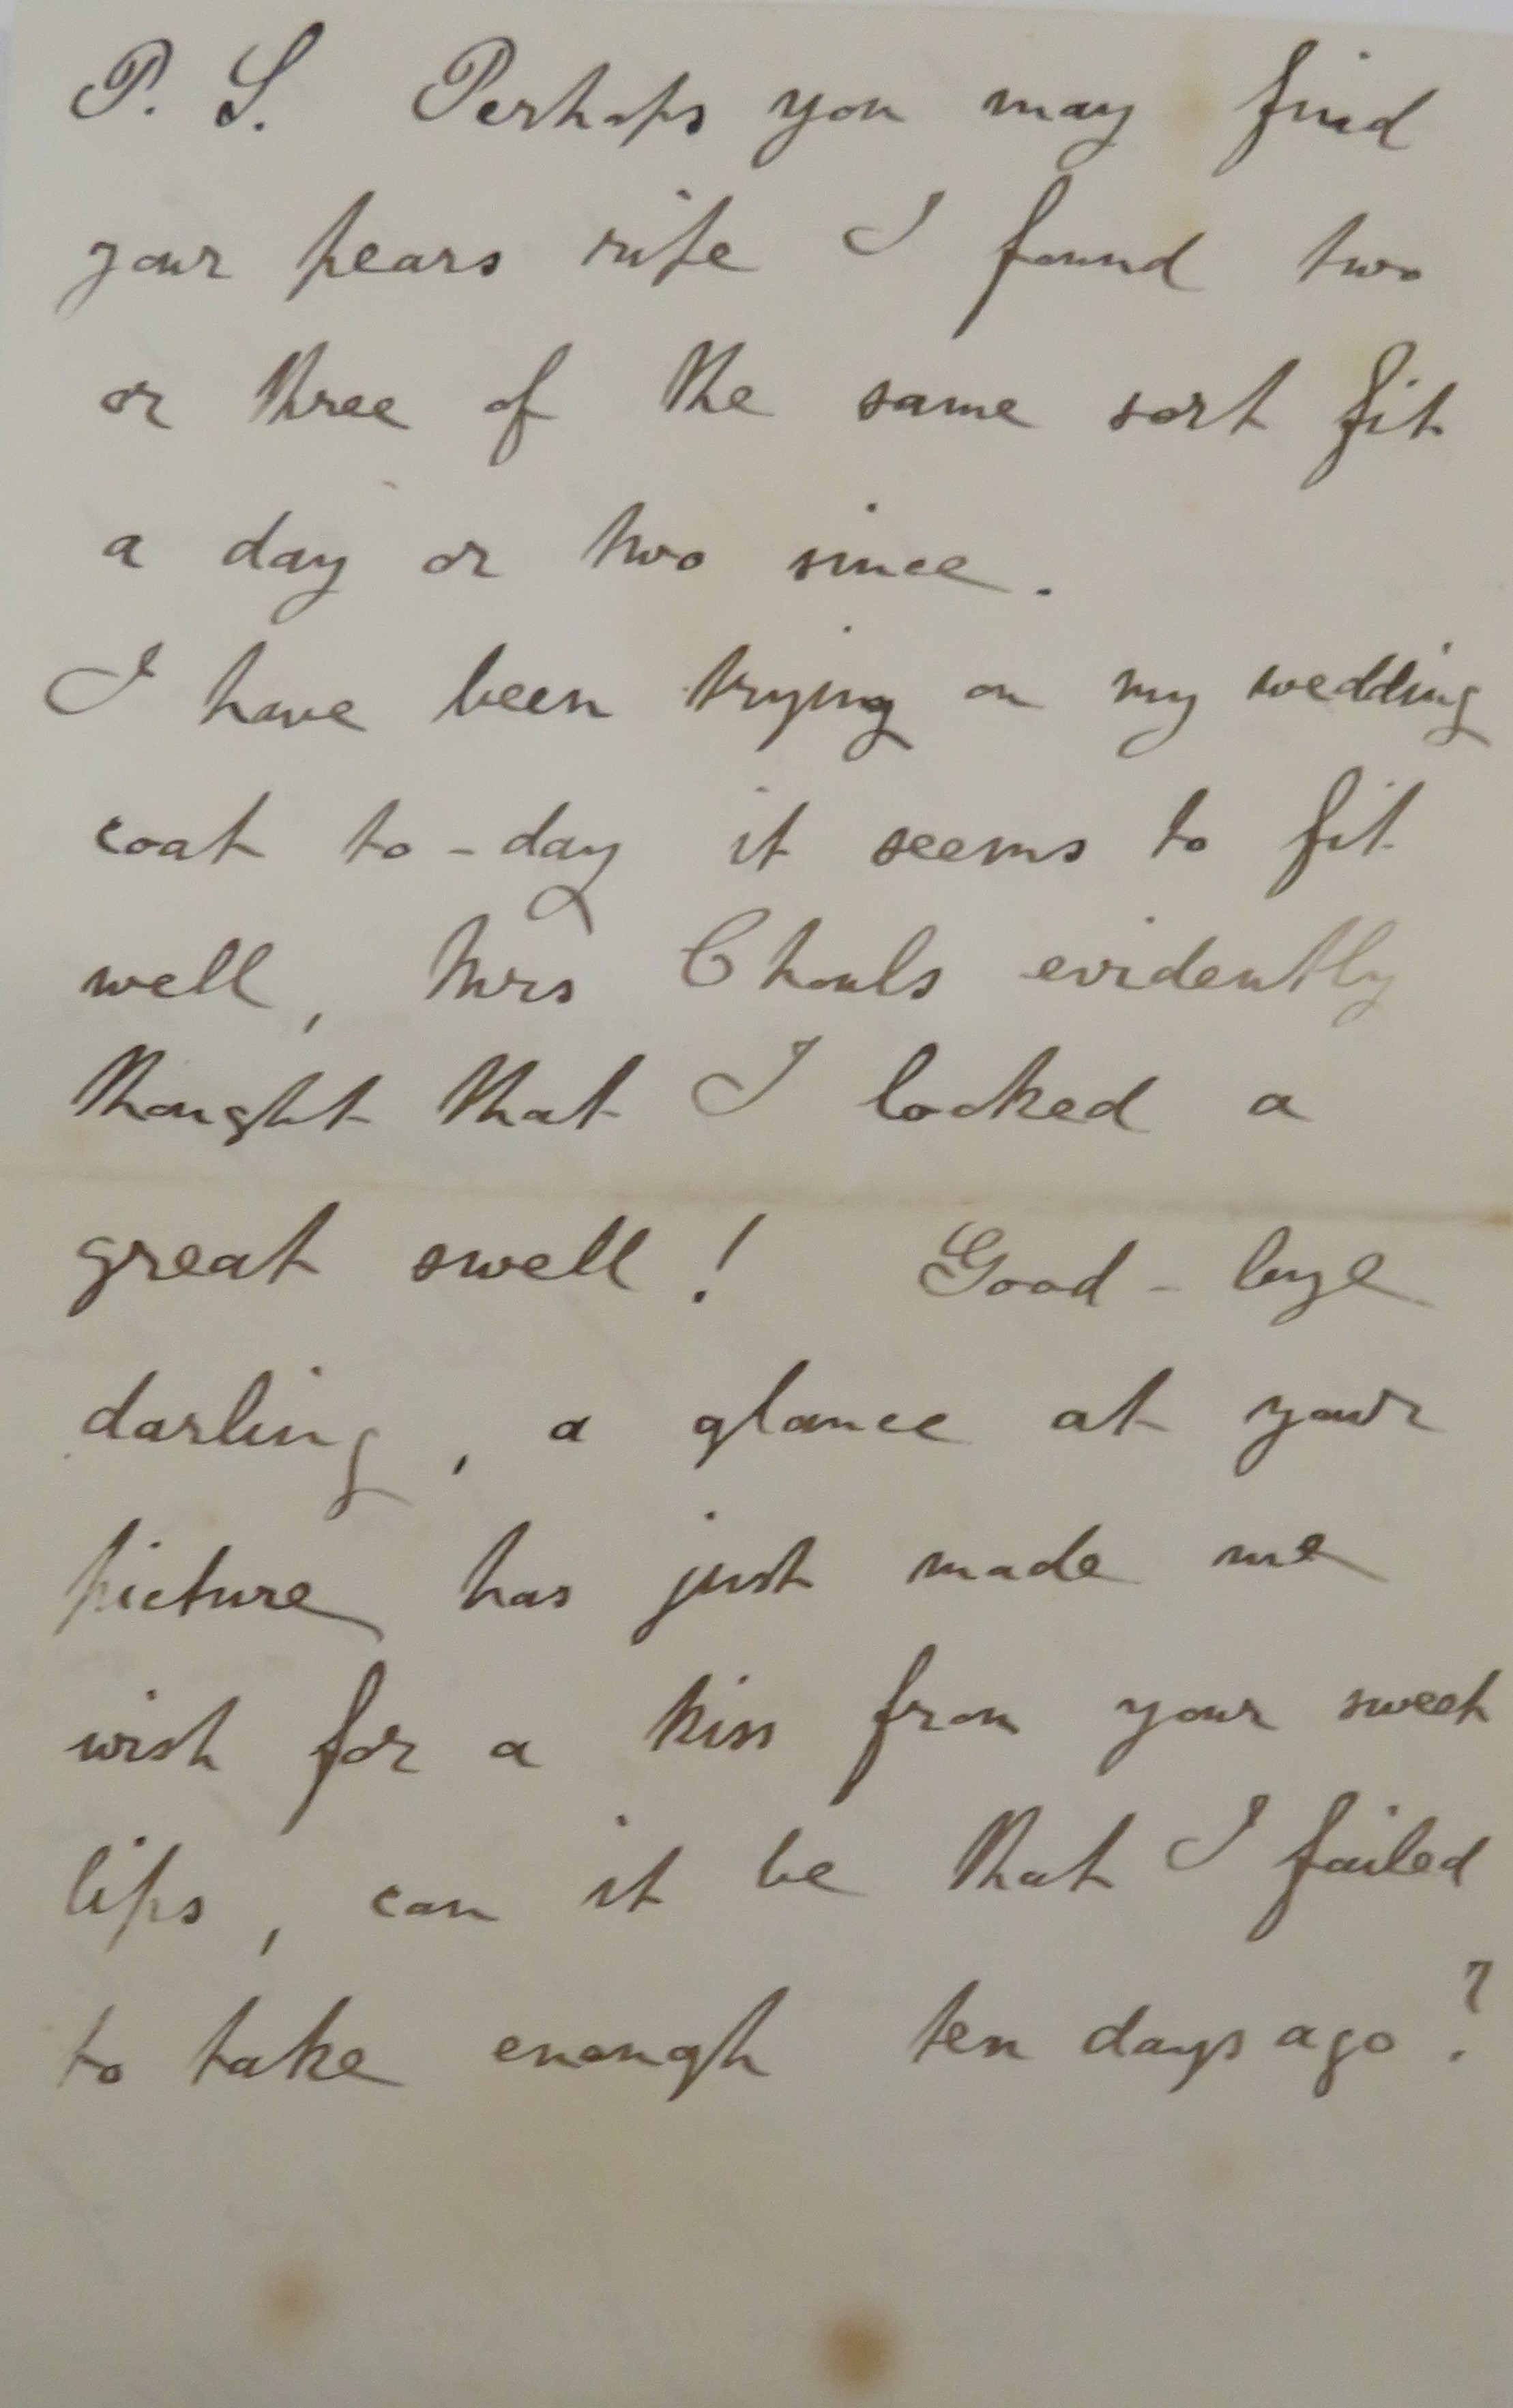 P. S. Perhaps you may find
your pears ripe I found two
or three of the same sort fit
a day or two since.
I have been trying on my wedding
coat to-day it seems to fit
well, Mrs Chouls evidently
thought that I looked a
great swell! Good-bye
darling, a glance at your
picture has just made me
wish for a kiss from your sweet
lips, can it be that I failed
to take enough ten days ago?